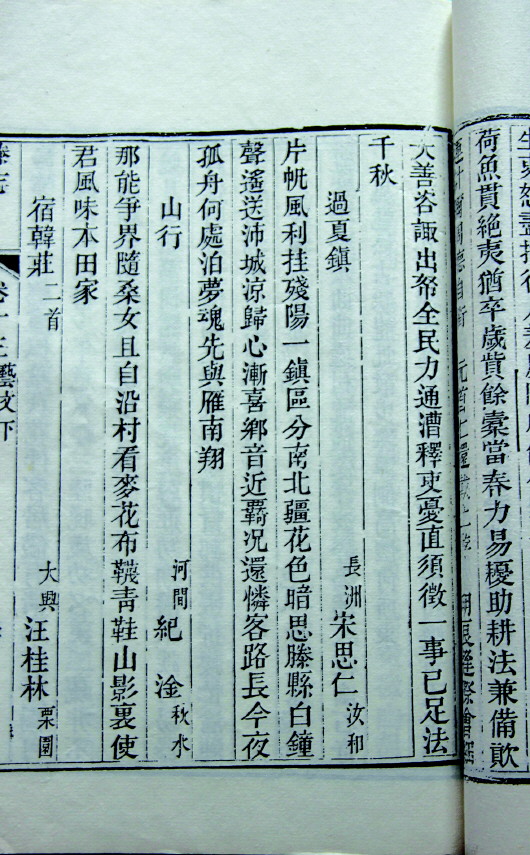 荷魚貫絶夷猶卒歲貲餘橐當春力易擾助耕法兼備歉
大善咨諏出帑全民力通漕釋吏憂直須徵一事已足法
千秋
過夏鎮
長洲宋思仁汝和
片帆風利挂殘陽一鎮區分南北疆花色暗思滕縣白鐘
聲遙送沛城涼歸心漸喜鄉音近覊况還憐客路長今夜
孤舟何處泊夢魂先與雁南翔
山行
河間紀淦秋水
那能爭界隨桑女且自沿村看麥花布韈青鞋山影裏使
君風味本田家
宿韓莊二首
大興汪桂林栗園
卷十三藝文下